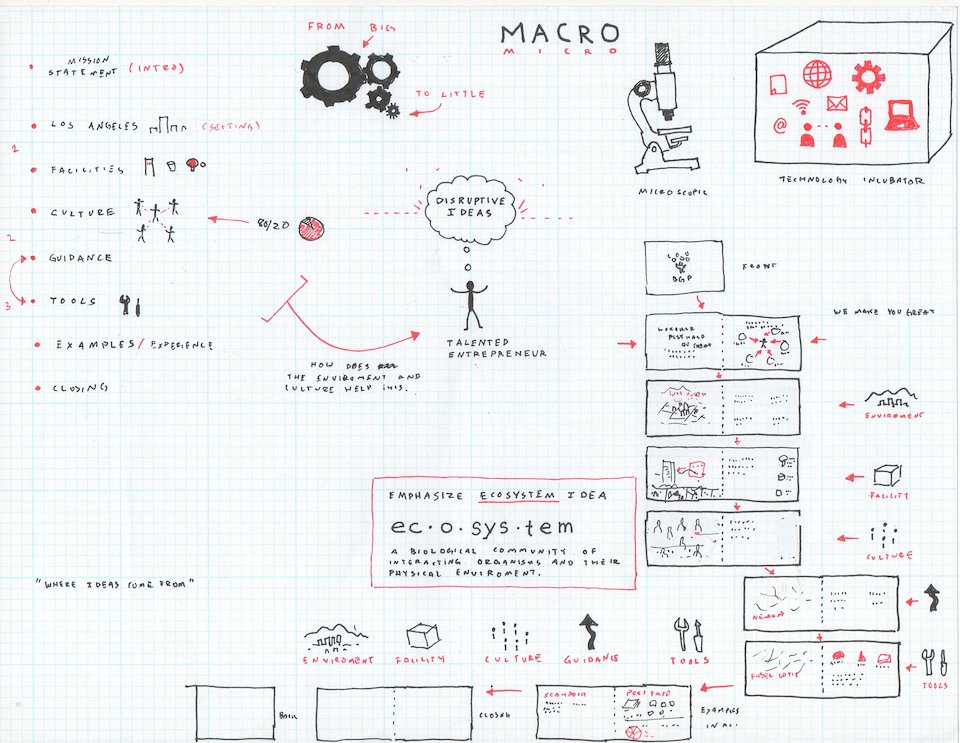 MACRO
MICRO
FROM BIG
TO LITTLE
MISSION
STATEMENT (INTRO)
LOS ANGELES (SETTING)
1
FACILITIES
CULTURE
80/20
2
GUIDANCE
3
TOOLS
EXAMPLES/EXPERIENCE
CLOSING
DISRUPTIVE
IDEAS
TALENTED
ENTREPRENEUR
HOW DOES
THE ENVIROMENT AND
CULTURE HELP THIS.
MICROSCOPIC
@
TECHNOLOGY INCUBATOR
BGP
FRONT
WE MAKE YOU GREAT
ENVIROMENT
FACILITY
CULTURE
EMPHASIZE ECOSYSTEM IDEA
ec·o·sys·tem
A BIOLOGICAL COMMUNITY OF
INTERACTING ORGANISMS AND THEIR
PHYSICAL ENVIROMENT.
"WHERE IDEAS COME FROM"
ENVIROMENT
FACILITY
CULTURE
GUIDANCE
TOOLS
TOOLS
BACK
CLOSING
PORTFOLIO
EXAMPLES